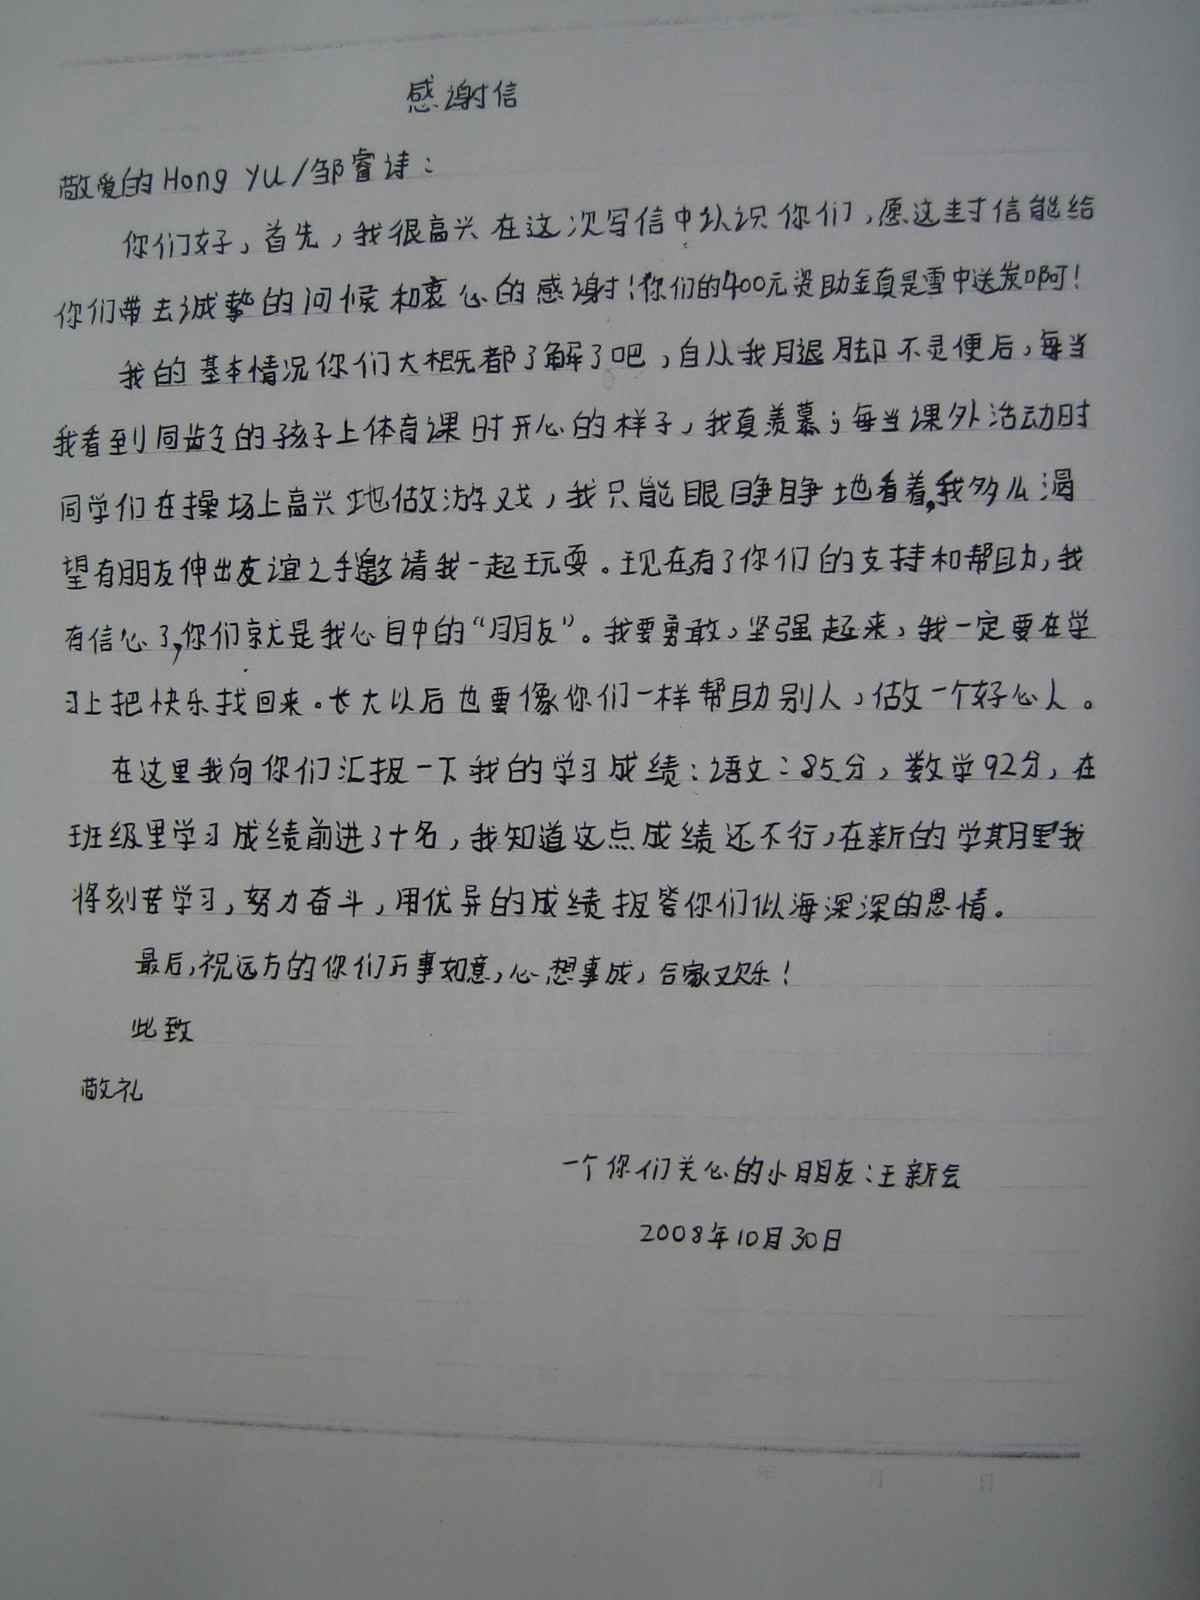 感谢信
敬爱的Hong Yu/邹睿诗：
你们好，首先，我很高兴在这次写信中认识你们，愿这封信能给
你们带去诚挚的问候和衷心的感谢！你们的400元资助金真是雪中送炭啊！
我的基本情况你们大概都了解了吧，自从我腿脚不灵便后，每当
我看到同龄的孩子上体育课时开心的样子，我真羡慕；每当课外活动时
同学们在操场上高兴地做游戏，我只能眼睁睁地看着，我多么渴
望有朋友伸出友谊之手邀请我一起玩耍。现在有了你们的支持和帮助，我
有信心了，你们就是我心目中的“朋友”。我要勇敢，坚强起来，我一定要在学
习上把快乐找回来。长大以后也要像你们一样帮助别人，做一个好心人。
在这里我向你们汇报一下我的学习成绩：语文：85分，数学92分，在
班级里学习成绩前进了十名，我知道这点成绩还不行，在新的学期里我
将刻苦学习，努力奋斗，用优异的成绩报答你们似海深深的恩情。
最后，祝远方的你们万事如意，心想事成，合家欢乐！
此致
敬礼
一个你们关心的小朋友：王新会
2008年10月30日